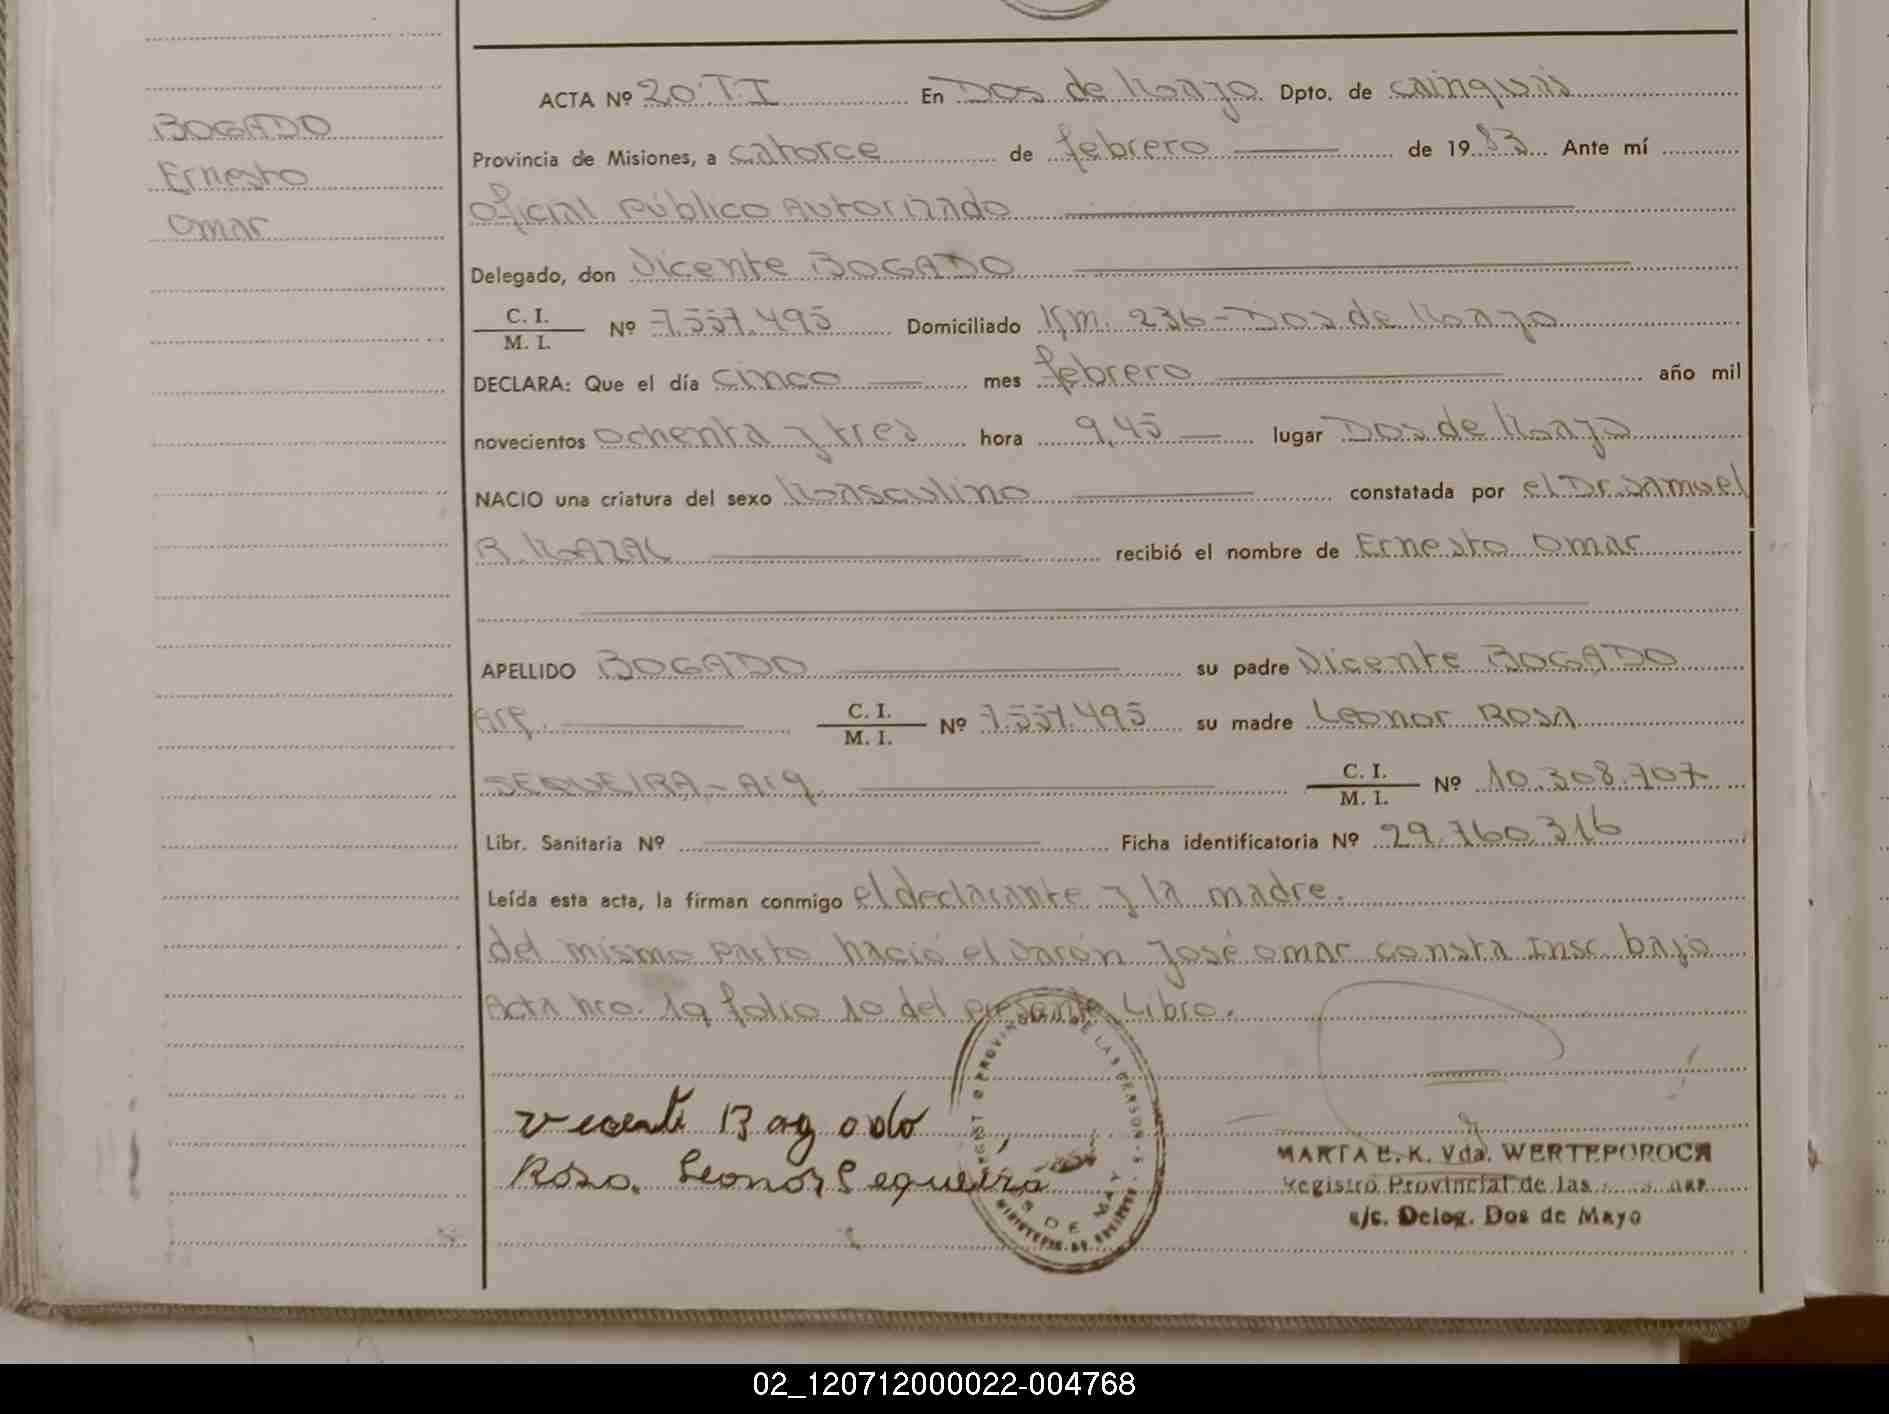 BOGADO
Ernesto
Omar
ACTA Nº 20 TI En Dos de Mayo Dpto. de Cainguás
Provincia de Misiones, a catorce de febrero de 1983 Ante mí
Oficial Público Autorizado
Delegado, don Vicente BOGADO
C. I.
M. I.
Nº 7.557.495 Domiciliado Km. 236 - Dos de Mayo
DECLARA: Que el día cinco mes febrero año mil
novecientos ochenta y tres hora 9,45 lugar Dos de Mayo
NACIO una criatura del sexo Masculino constatada por el Dr. Samuel
R. MAZAL recibió el nombre de Ernesto Omar
APELLIDO BOGADO su padre Vicente BOGADO
Arg. C. I. M. I. Nº 7.557.495 su madre Leonor Rosa
SEQUEIRA - Arg. C. I. M. I. Nº 10.308.707
Libr. Sanitaria Nº Ficha identificatoria Nº 29.760.316
Leída esta acta, la firman conmigo el declarante y la madre.
del mismo parto nació el varón José Omar consta Insc. bajo
Acta nro. 19 folio 10 del presente Libro.
Rosa Leonor Sequeira
MARTA E. K. Vda. WERTEPOROCH
Registro Provincial de las
a/c. Deleg. Dos de Mayo
02_120712000022-004768